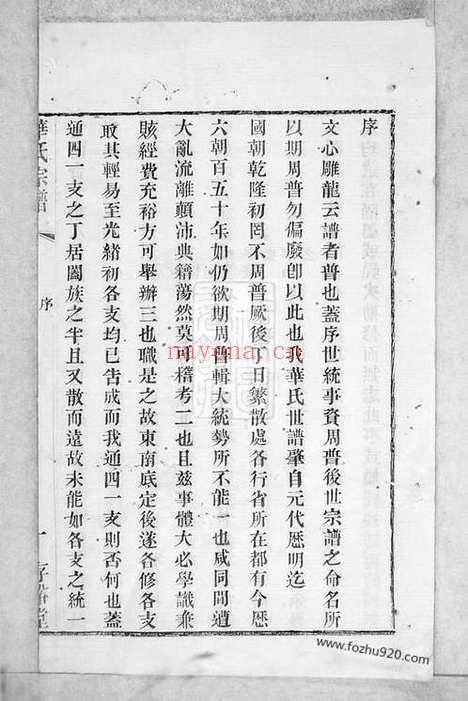 序
文心雕龍云譜者普也蓋序世統事資周普後世宗譜之命名所
以期周普勿偏廢卽以此也我華氏世譜肇自元代歷明迄
國朝乾隆初罔不周普厥後丁日繁散處各行省所在都有今歷
六朝百五十年如仍欲期周普輯大統勢所不能一也咸同間遭
大亂流離顛沛典籍蕩然莫可稽考二也且兹事體大必學識兼
賅經費充裕方可舉辦三也職是之故東南底定後遂各修各支
取其輕易至光緒初各支均已告成而我通四一支則否何也蓋
通四一支之丁居闔族之半且又散而遠故未能如各支之統一
華氏宗譜
序
一
存裕堂
nayona.cn
www.fozhu920.com